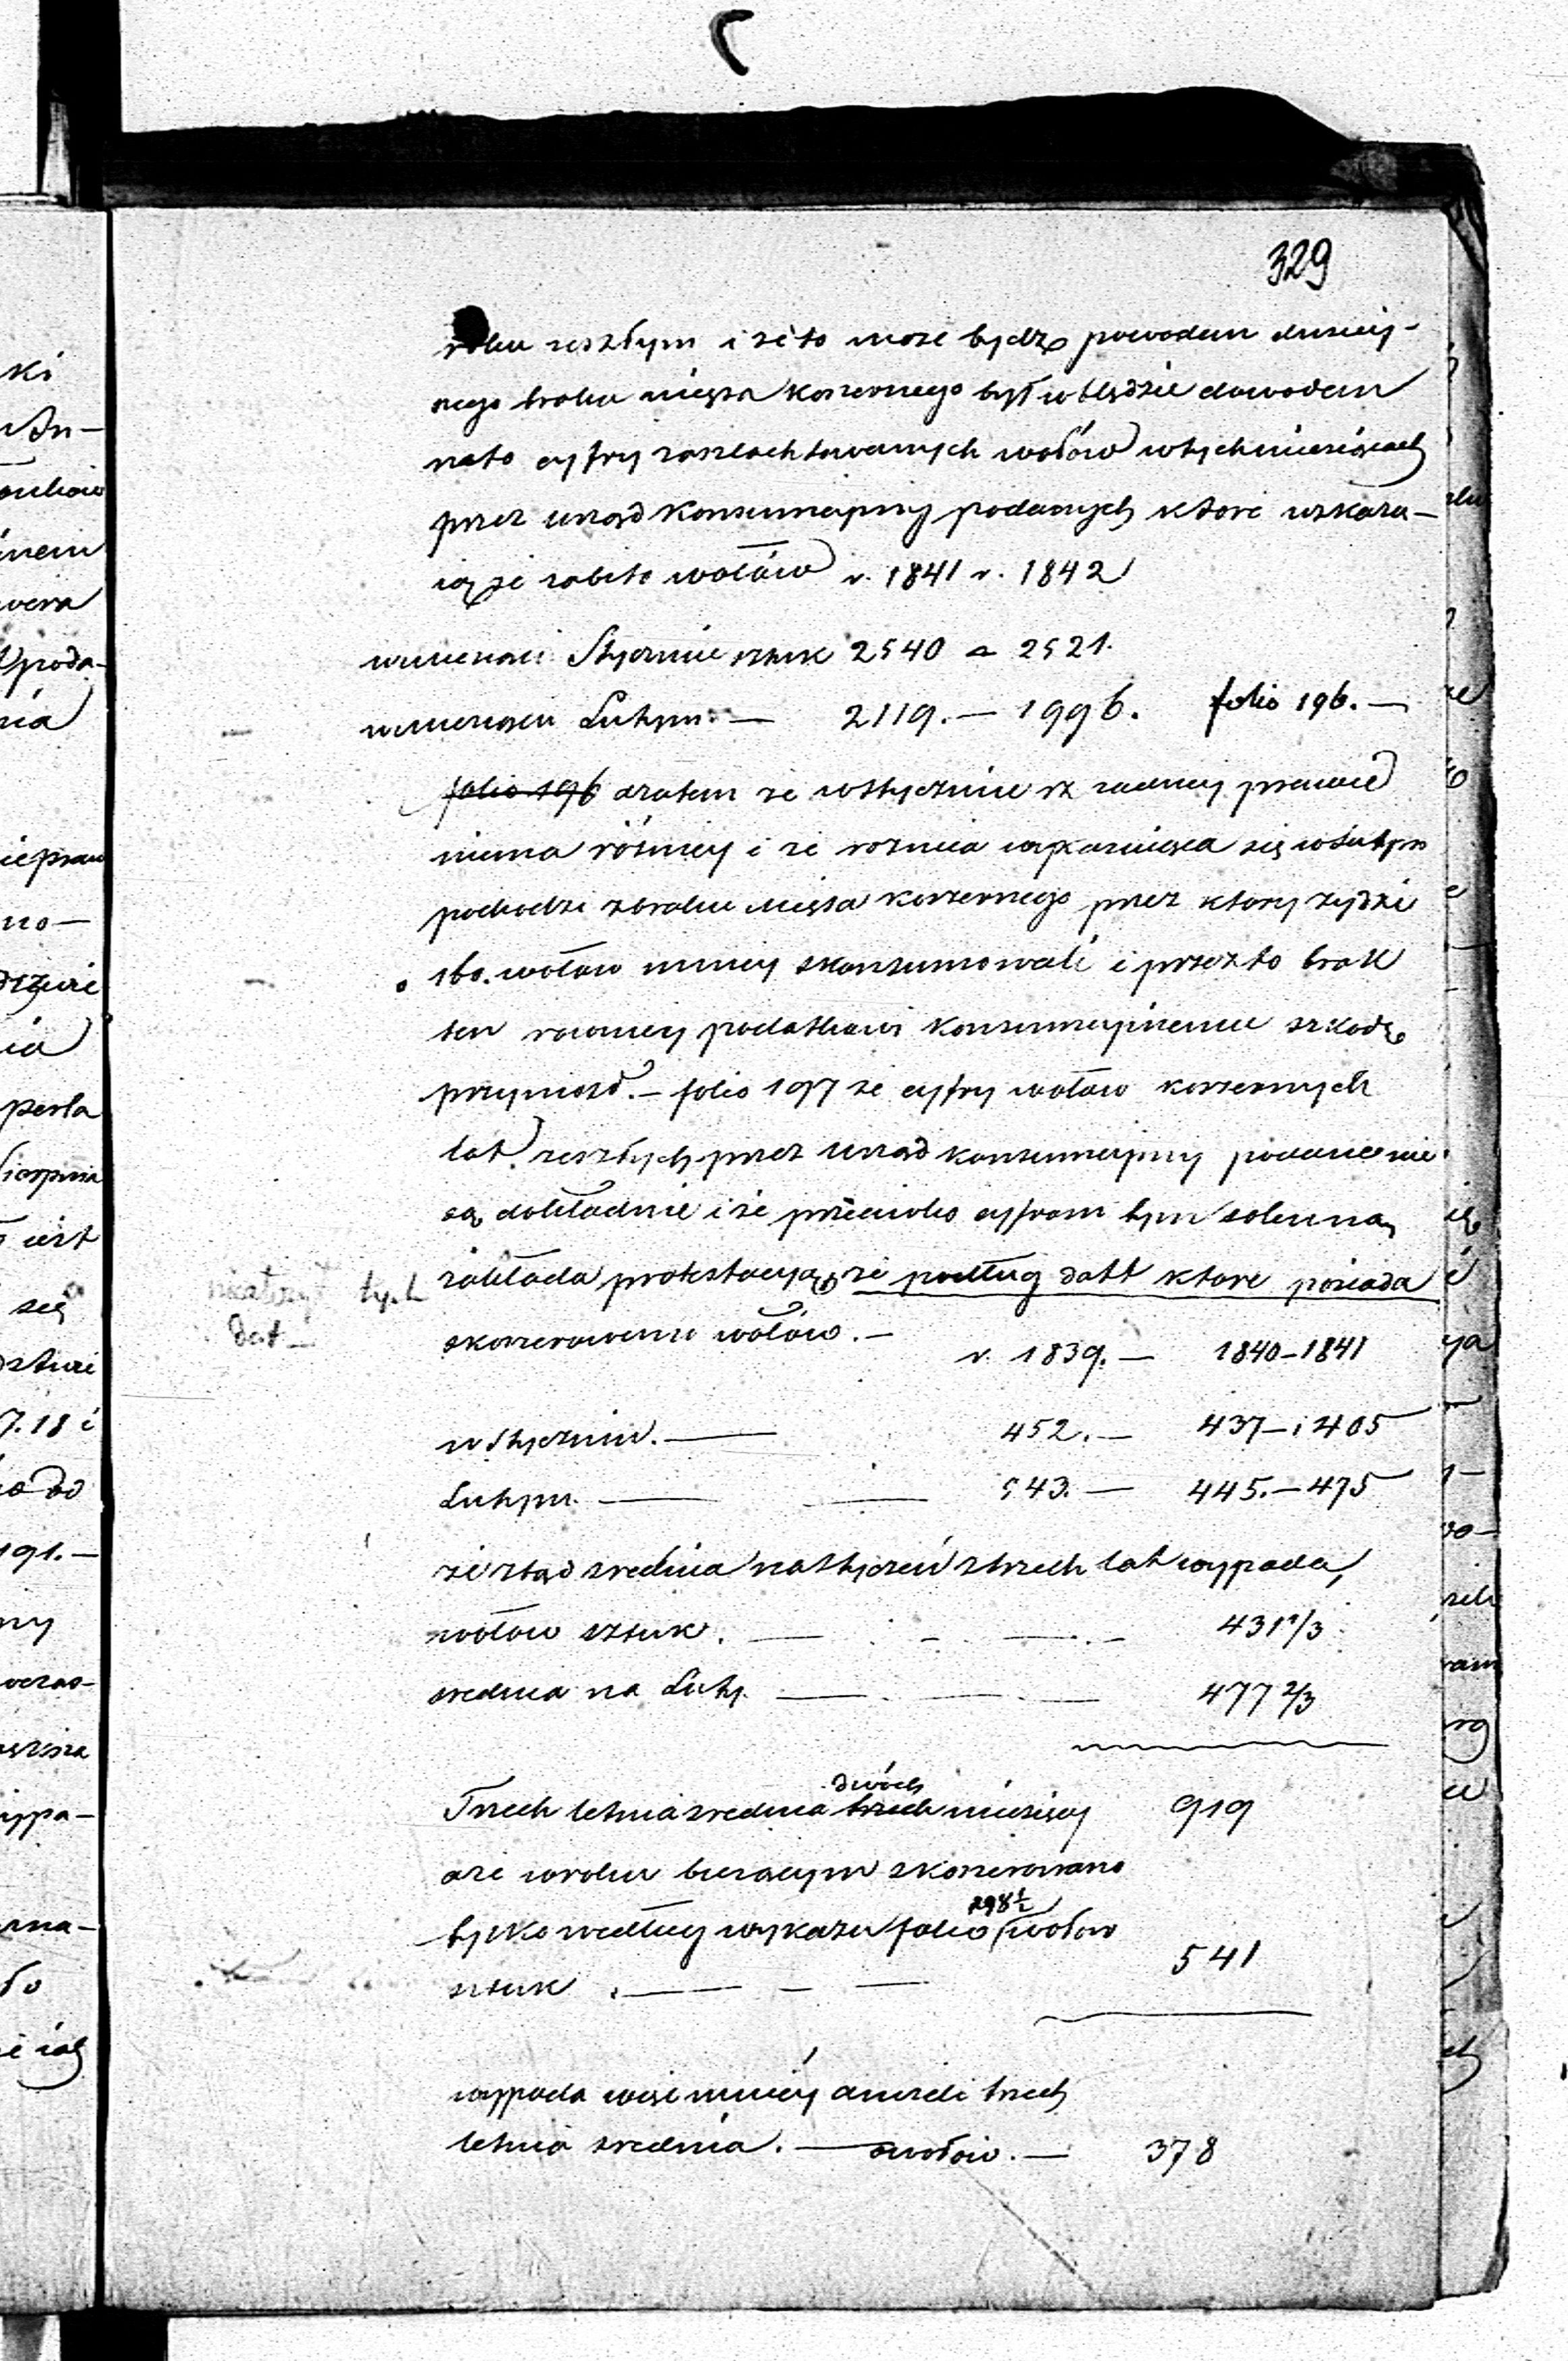 329
roku zeszłym i że to może bydź powodem
nego braku mięsa koszernego był w błędzie dowodem
na to cyfry zaszlachtowanych wołów w tych miesiącach
przez urząd konsumcyiny podanych które wskazu-
ią że zabito wołów r. 1841 r. 1842
w miesiącu Styczniu sztuk 2540 a 2521.
w miesiącu Lutym. — 2119. — 1996. folio 196. —
folio 196 a zatem że w Styczniu żadney prawie
niema różnicy i że różnica w Lutym
pochodzi z braku mięsa koszernego przez który żydzi
160. wołów mniey skonsumowali i przez to brak
ten podatkowi konsumcyinemu szkodę
przyniosł. — folio 197 że cyfry wołów koszernych
lat zeszłych przez urząd konsumcyiny podane nie
są dokładnie i że przeciwko cyfrom tym solenną
zakłada protestacyą, że podług datt które posiada
tych
dat —
skoszerowano wołów. —
r. 1839. — 1840 — 1841
w Styczniu. — 452. — 437 — i 405
Lutym. — — 543. — 445. — 475
że ztąd srednia na Styczeń z trzech lat wypada
wołów sztuk. — — 431 1/3
srednia na Luty. — — 477 2/3
dwóch
Trzech letnia srednia trzech miesięcy 919
a że w roku bieżącym skoszerowano
298 1/2
tylko według wykazu folio wołów
sztuk. — — 541
wypada więc mniey aniżeli trzech
letnia srednia. — wołów. — 378